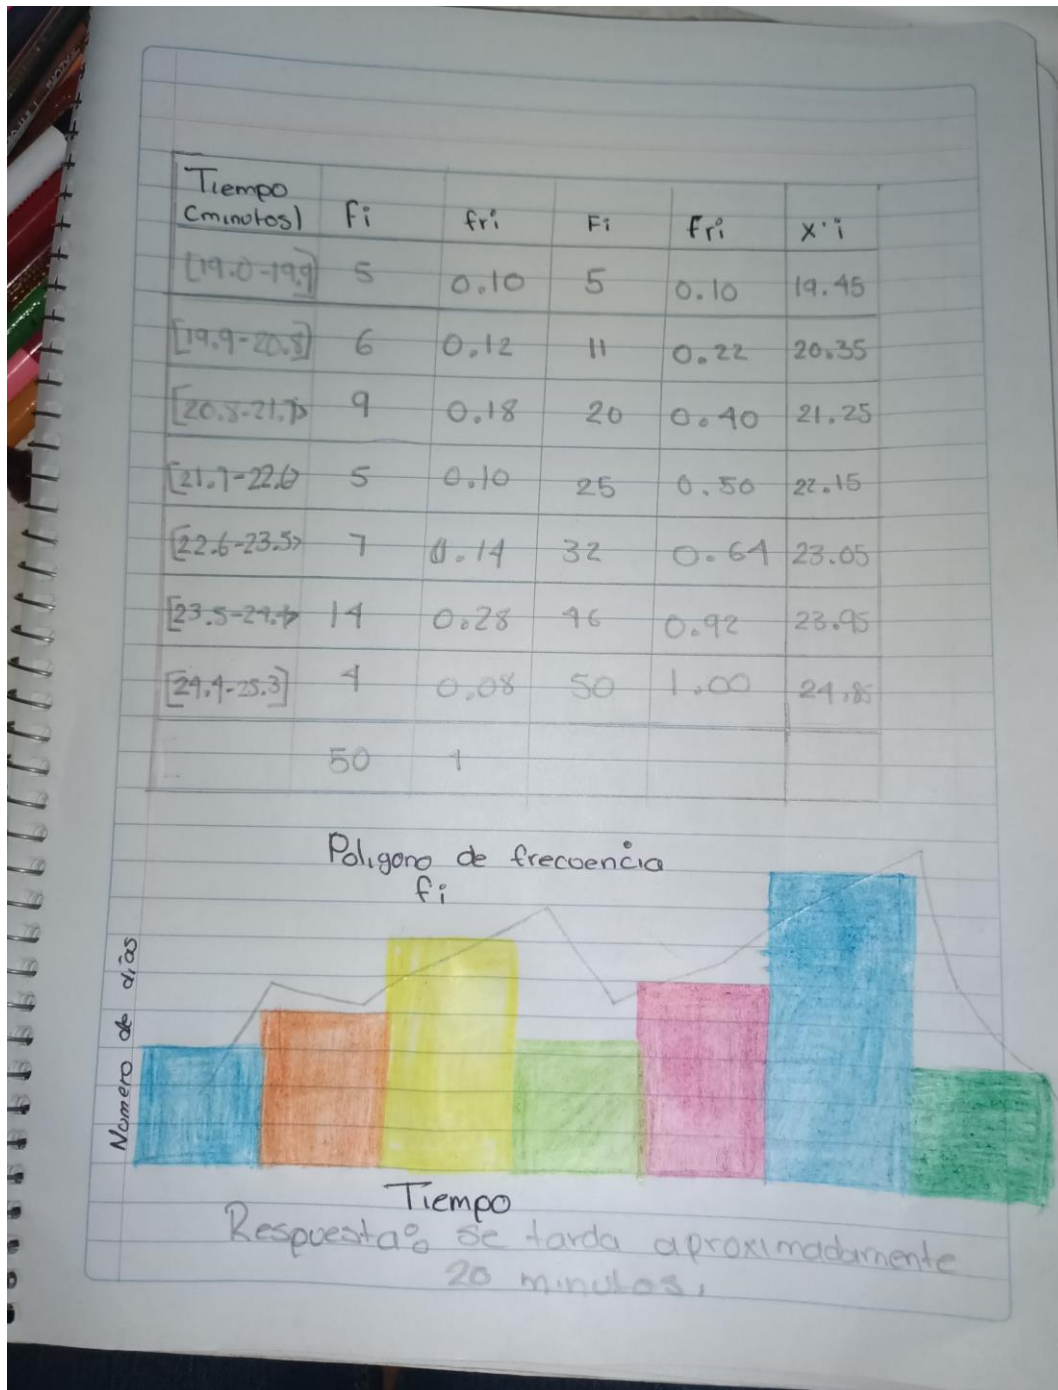 Tiempo
(minutos) fi fri Fi fri x·i
[19.0-19.9] 5 0.10 5 0.10 19.45
[19.9-20.8] 6 0.12 11 0.22 20.35
[20.8-21.7> 9 0.18 20 0.40 21.25
[21.7-22.6> 5 0.10 25 0.50 22.15
[22.6-23.5> 7 0.14 32 0.64 23.05
[23.5-24.4> 14 0.28 46 0.92 23.95
[24.4-25.3] 4 0.08 50 1.00 24.85
50 1
Poligono de frecuencia
fi
Numero de días
Tiempo
Respuesta: se tarda aproximadamente
20 minutos.